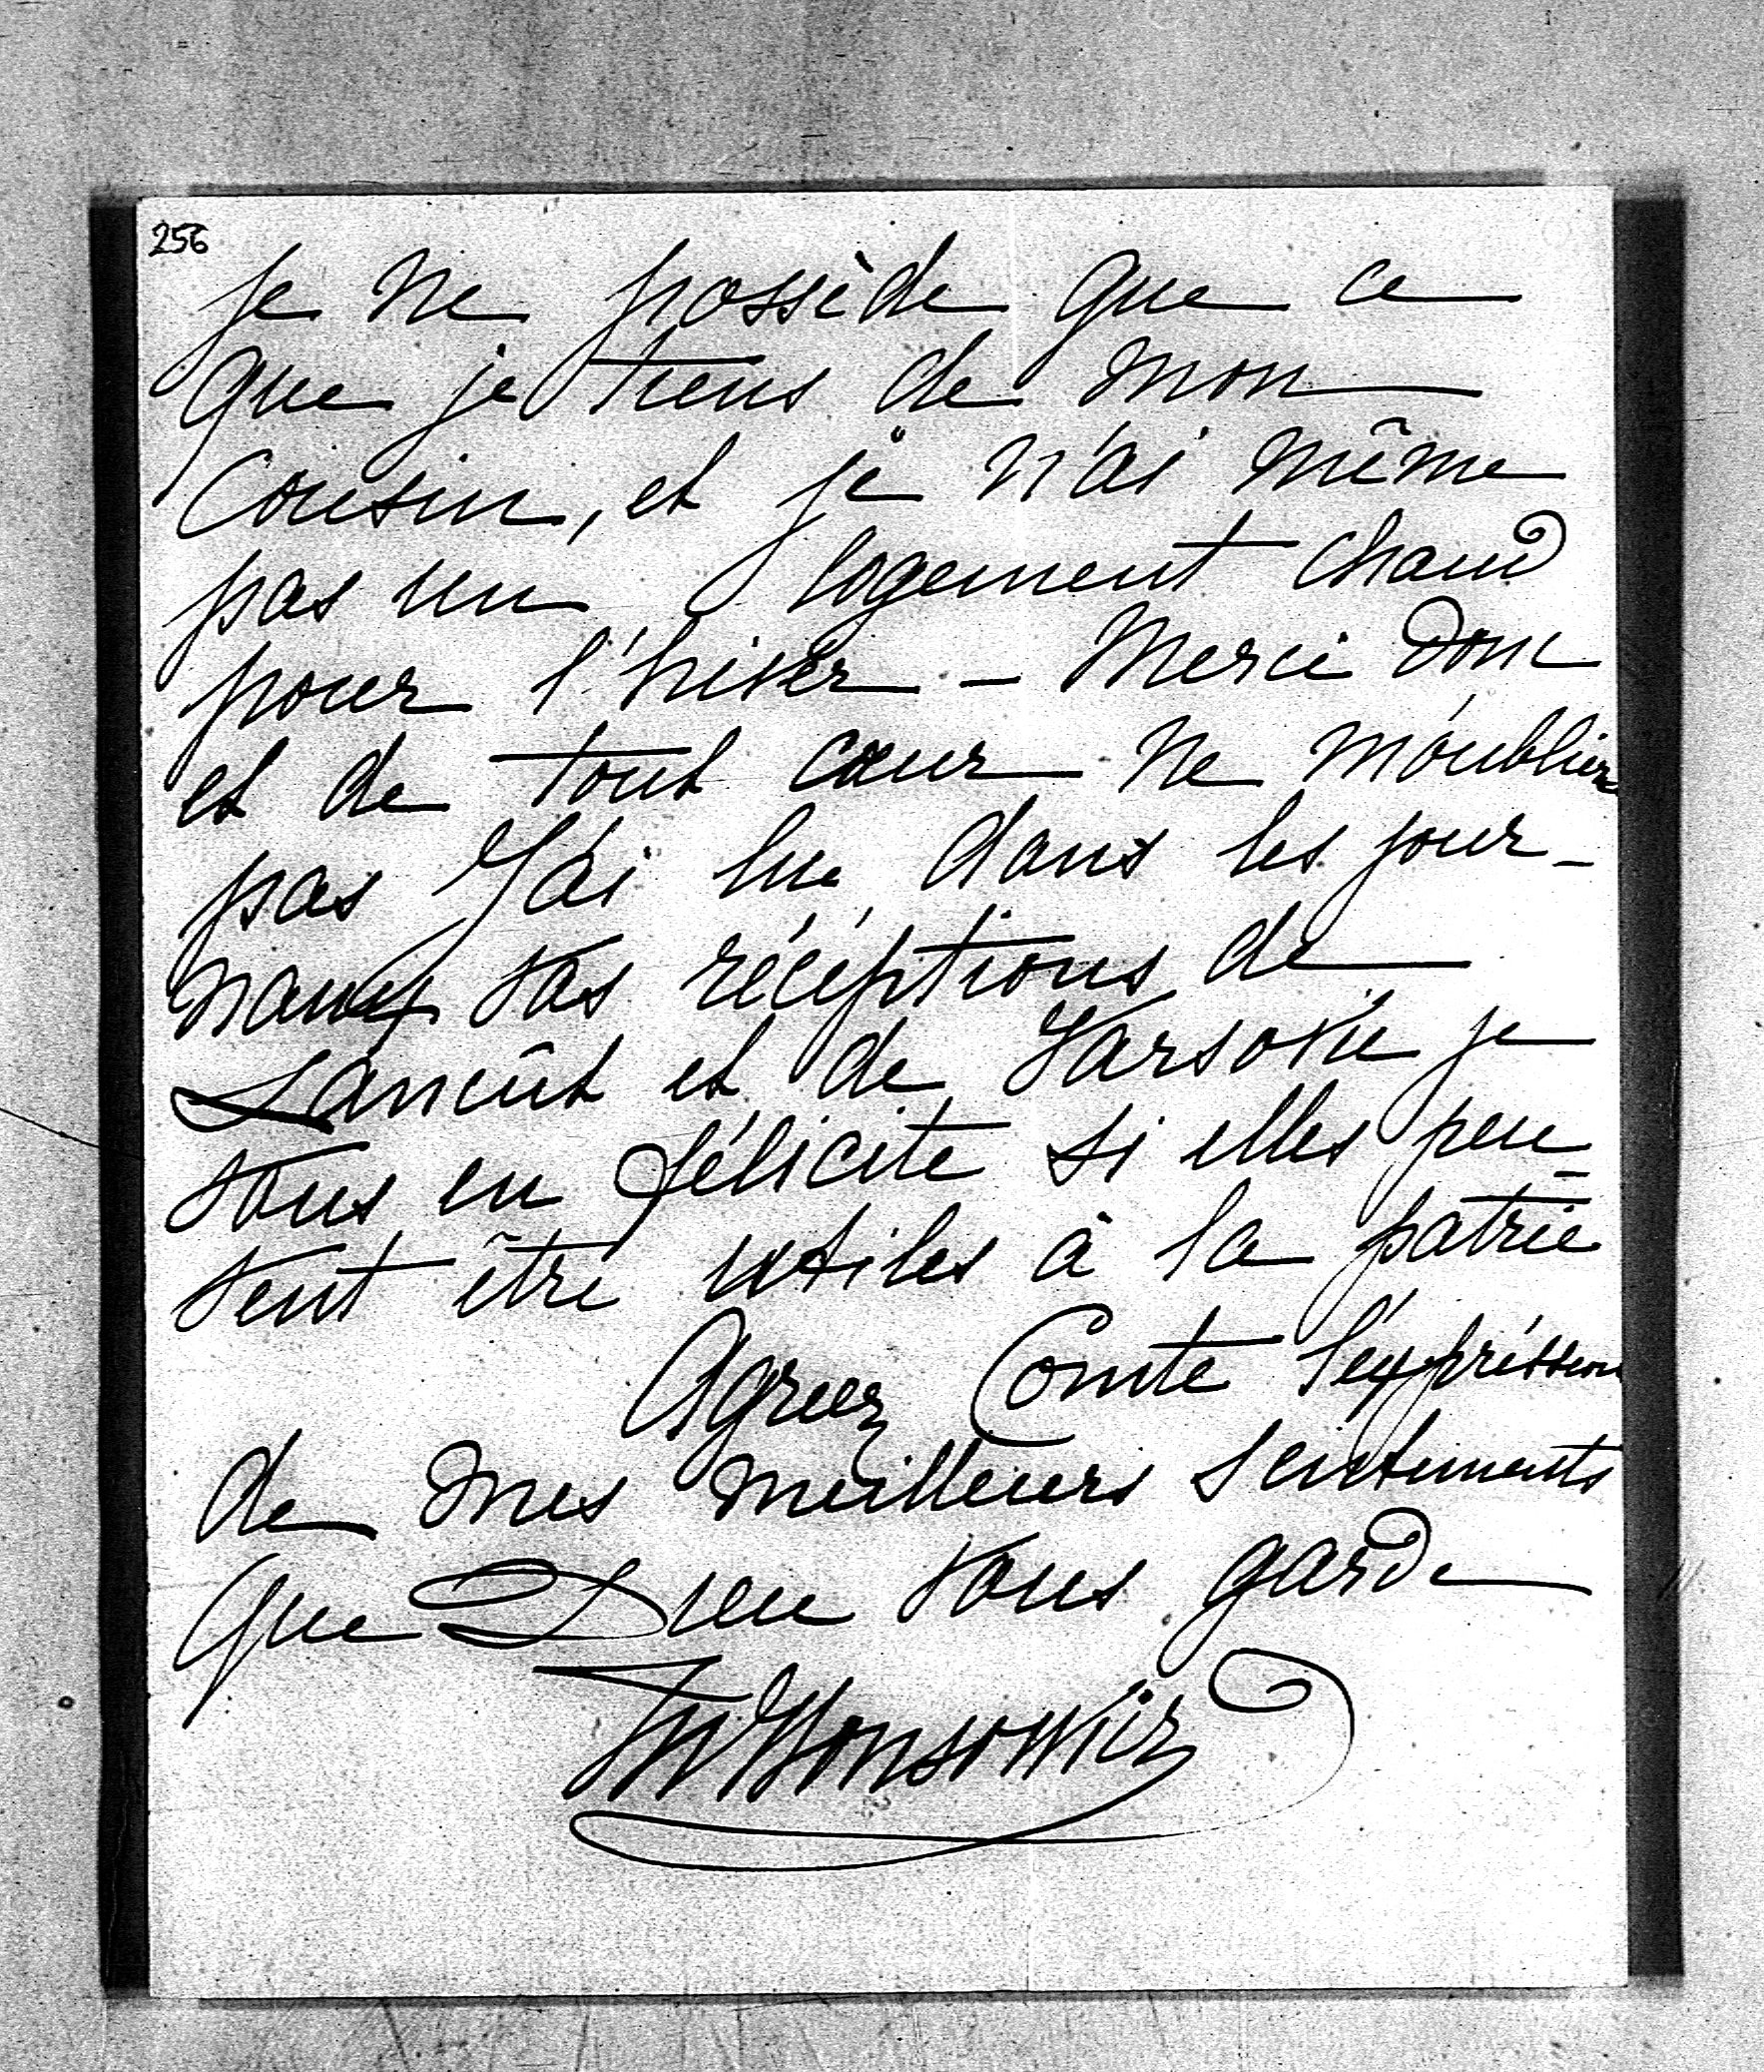 256
je ne possède que ce
que je tiens de mon
Cousin, et je n'ai même
pas un logement chaud
pour l'hiver – Merci donc
et de tout cœur ne m'oubliez
pas J'ai lu dans les jour-
naux vos réceptions de
Lancut et de Varsovie je
vous en félicite si elles peu-
vent être utiles à la patrie
Agreez Comte l'expréssion
de mes meilleurs sentiments
que Dieu vous garde